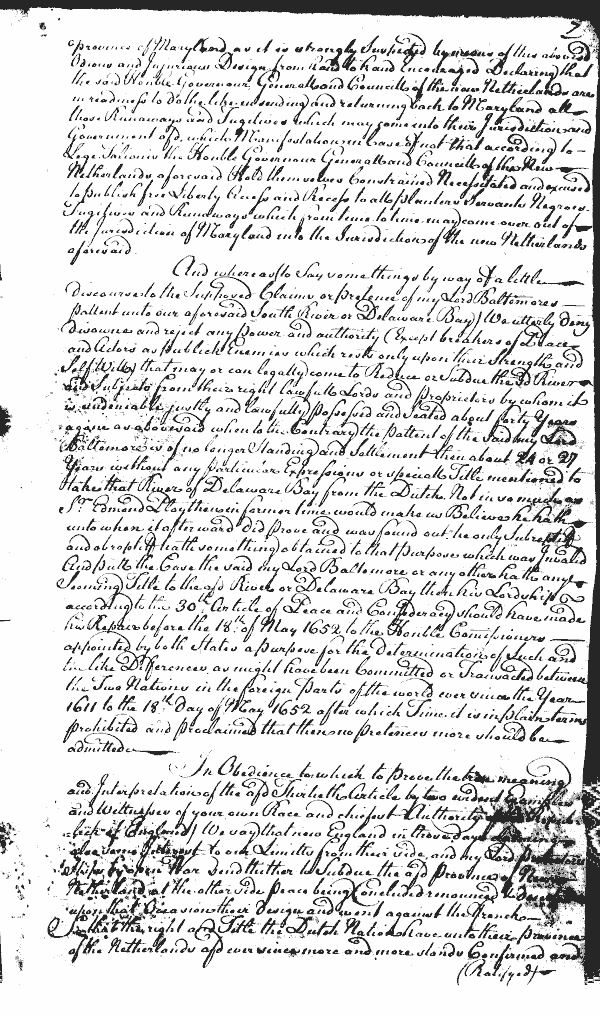 2
province of Maryland, as it is strongly Suspected by means of this abovesd
Odious and Injurious Design from hand to hand Encouraged Declaring that
the said Honble Governour, Generall and Councill of the new Netherlands are
in readiness to do the like in sending and returning back to Maryland all
those Runaways and Fugitives which may come into their Jurisdiction and
Government afd, which Manifestation in case of not that according to
Lege Talionis the Honble Governour Generall and Councill of the New
Netherlands aforesaid Hold themselves Constrained Necessitated and excused
to publish free Liberty Access and Recess to all planters Servants Negroes
Fugitives and Runaways which from time to time may come over out of
the Jurisdiction of Maryland into the Jurisdiction of the new Netherlands
aforesaid.
And whereas to Say somethings by way of a little
discourse to the Supposed Claime or pretence of my Lord Baltemores
pattent unto our aforesaid South River or Delaware Bay) We utterly deny
disowne and reject any power and authority (Except breakers of Peace
and Actors as publick Enemies which rests only upon their Strength and
Self Will) that may or can legally come to Reduce or Subdue the sd River
and Subjects from their right lawfull Lords and proprietors by whom it
is undeniable justly and lawfully possessed and seated about forty Years
agone as abovesaid when to the Contrary the pattent of the Said my Lord
Baltemore is of no longer Standing and Settlement then about 24 or 27
Years without any perticular Expressions or speciall Title mentioned to
take that River of Delaware Bay from the Dutch. Not in so much as
Sr. Edmond Ploythen in former time would make us Believe he hath
unto when it afterward did prove and was found out he only Subreptiff
and obreptiff hath something obtained to that purpose which was Invalid
And putt the Case the said my Lord Baltemore or any other hath any
Seeming Title to the afd River or Delaware Bay then his Lordship
according to the 30th. Article of Peace and Confideracy should have made
his Repair before the 18th. of May 1652 to the Honble Comissioners
appointed by both States a purpose for the Determination of Such and
the like Differences as might have been Committed or Transacted between
the Two Nations in the foreign Parts of the world ever since the Year
1611 to the 18th Day of May 1652 after which Time it is in plain terms
prohibited and proclaimed that then no pretences more should be
admitted.
In Obedience to which to prove the true meaning
and Interpretation of the afd Thirtieth Article by two evident Examples
and Witnesses of your own Race and chiefest Authority
of England) We say that new England in those days
some Interest to our Limitts from their side, and my Lord
Ships by open War send thither to Subdue the afd Province of
Netherland at the other side Peace being Concluded renounced &
upon that Occasion their Design and went against the French
So that the right and Title the Dutch Nation have unto their province
of the Netherlands afd ever since more and more stands Confirmed and
(Ratifyed)